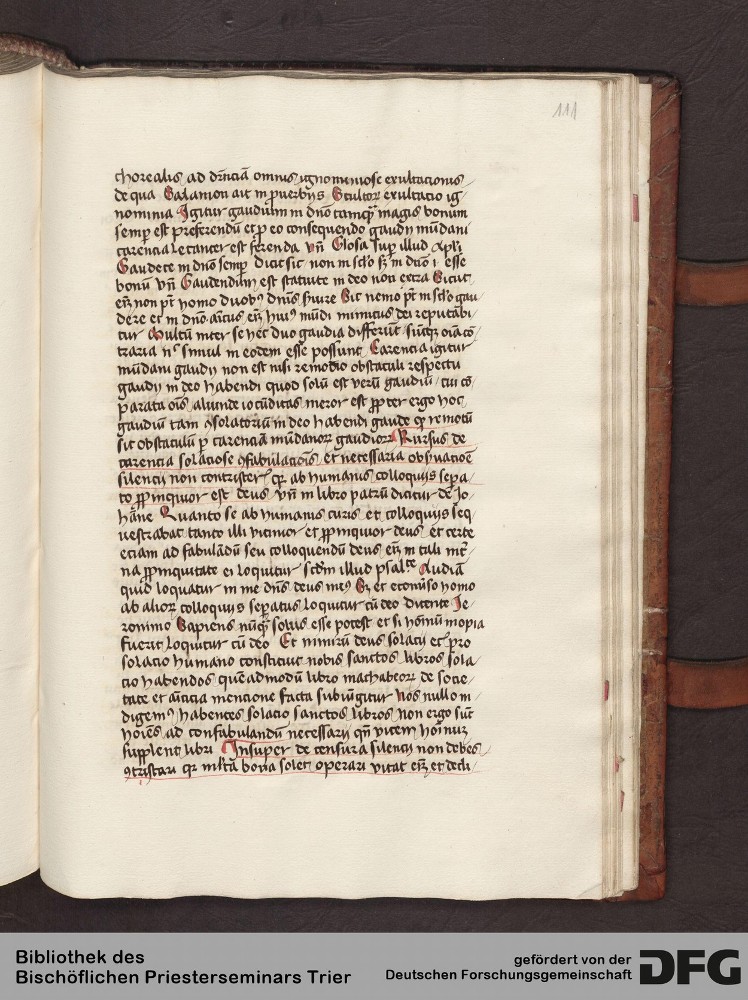 111
chorealis ad drnciā omnis ignominiose exultacionis
de qua Salamon ait in puerbijs Stultor exultacio ig
nominia Igitur gaudium in dno tamqꝫ magis bonum
semp est preferendū et p eo consequendo gaudij mūdani
carencia letanter est ferenda vn̄ Glosa sup illud apli
Gaudete in dno semp dicit sic non in sclo sꝫ in dno i esse
bonū vn̄ Gaudendum est statuite in deo non extra Sicut
em̄ non pt homo duobꝰ dnis suire Sic nemo pt in sclo gau
dere et in dno amicus em̄ huiꝰ mūdi inimicus dei reputabi
tur Multū inter se hec duo gaudia differūt suntqꝫ oīa cō
traria nᶜ simul in eodem esse possunt Carencia igitur
mūdani gaudij non est nisi remocio obstaculi respectu
gaudij in deo habendi quod solū est verū gaudiū cui cō
parata oīs aliunde iocūditas meror est ppter ergo hoc
gaudiū tam ꝯsolatoriū in deo habendi gaude qꝛ remotū
sic obstaculū p carenciā mūdanoꝝ gaudioꝝ Rursus de
carencia solaciose ꝯfabulacōis et necessaria obsuacioē
silencij non contrister qꝛ ab humanis colloquijs sepa
to ppinquior est deus vn̄ in libro patrū dicitur de Jo
hāne Quanto se ab humanis curis et colloquijs seq
uestrabat tanto illi vicinior et ppinquior deus et certe
eciam ad fabulādū seu colloquendū deus em̄ in tali
na ppinquitate ei loquitur scdm illud psal Audiā
quid loquatur in me dns deus meꝰ Sꝫ et econuso homo
ab alioꝝ colloquijs sepatus loquitur cū deo dicente Je
ronimo Sapiens nūqꝫ solus esse potest et si hoīnū inopia
fuerit loquitur cū deo Et nimirū deus solacij et pro
solacio humano constituit nobis sanctos libros sola
cio habendos queadmodū libro machabeoꝝ de socie
tate et amicicia mencione facta subiūgitur Nos nullo in
digemꝰ habentes solacio sanctos libros non ergo sūt
hoīes ad confabulandū necessarij qn̄ vicem hoīnū
supplent libri Insuper de censura silencij non debes
ꝯtristari qꝛ mlta bona solet operari vitat em̄ et decli
Bibliothek des
Bischöflichen Priesterseminars Trier
gefördert von der
Deutschen Forschungsgemeinschaft
DFG